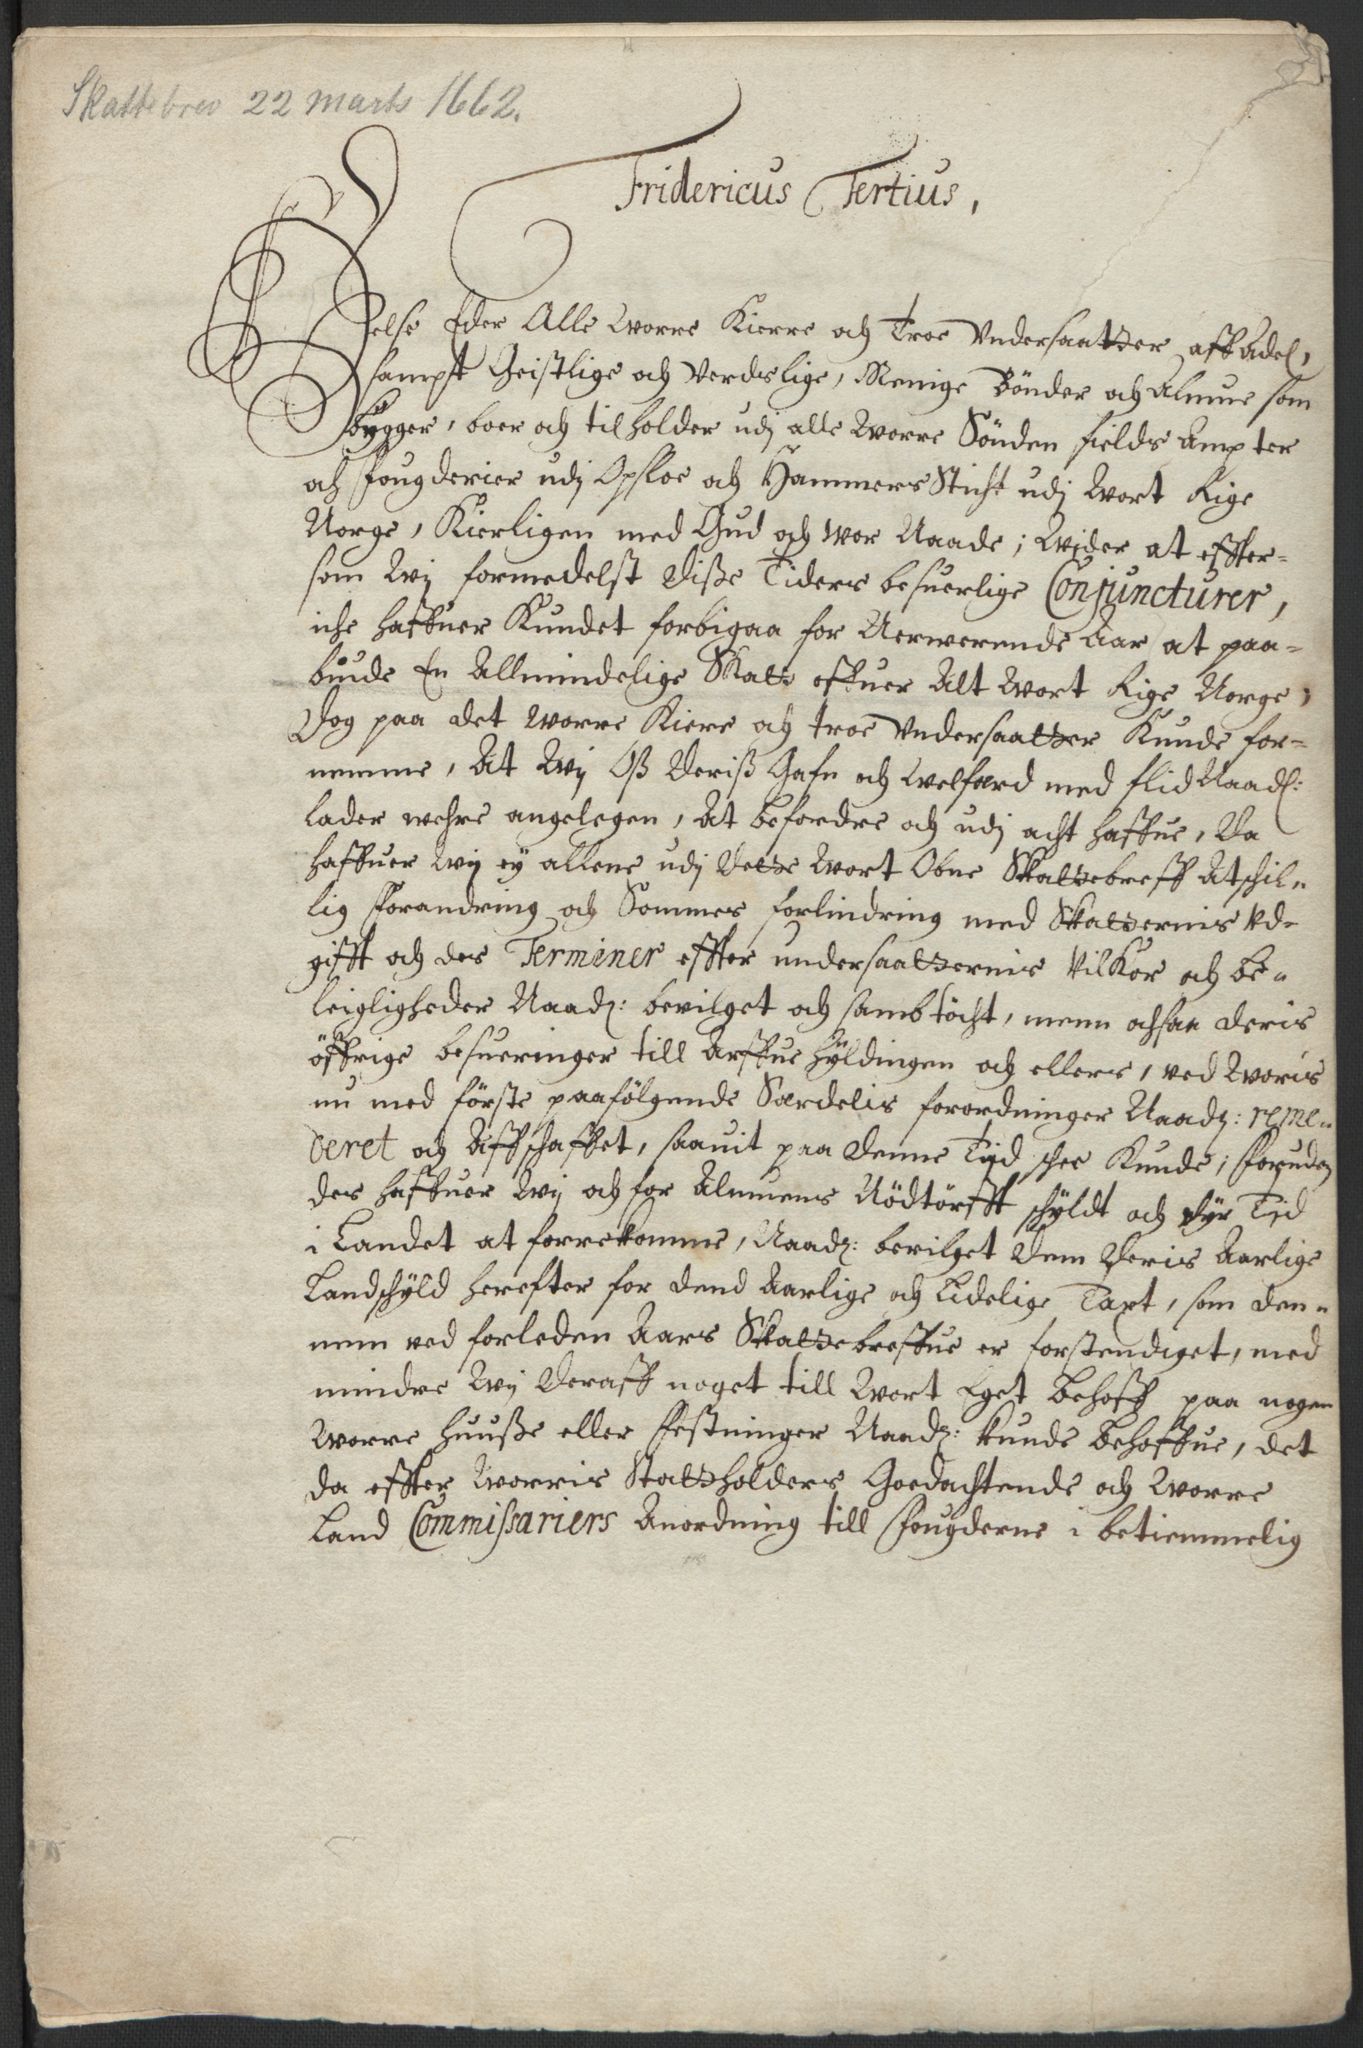 Skattebrev 22 marts 1662.
Fridericus Tertius,
Helse Eder Alle Worre Kierre och Troe Vndersaatzer aff Adel,
sampt Geistlige och Verdslige, Menige Bönder och Almue som
bygger, boer och tilholder udj alle Worre Sönden fields Ampter
och Fougderier udj Opsloe och Hammers Sticht udj Wort Rige
Norge, Kierligen med Gud och Wor Naade; Wider at effter-
som Wij formedelst Disse Tiders besuerlige Conjuncturer,
iche haffuer Kundet forbigaa for Nerwerende Aar at paa-
biude En Allmindelige Skatz offuer Alt Wort Rige Norge,
Dog paa det Worre Kiere och troe Vndersaatzer Kunde for-
nemme, At Wij Oß Deriß Gafn och Welfard med flid Naad:
Lader wehre angelegen, At befordre och udj acht haffue, Da
haffuer Wij ey allene udj Dette Wort Obne Skatzebreff Atschil-
lig Forandring och Sommes forlindring med Skatzernis Vd-
gifft och des Terminer effter undersaatzernis Vilkor och be-
leigligheder Naad: bevilget och sambtöcht, menn ochsaa Deris
öffrige besueringer till Arffue Hyldingen och ellers, ved Woris
nu med förste paafölgende Særdelis forordninger Naad: reme-
deret och Affschaffet, saauit paa Denne Tijd schee Kunde; Foruden
des haffuer Wij och for Almuens Nödtörfft schyldt och Dyr Tid
i Landet at forrekomme, Naad: bevilget Dem Deris Aarlige
Landschyld herefter for Dend Aarlige och Lidelige Taxt, som den-
nem ved forleden Aars Skatzebreffue er forstendiget, med
mindre Wij Deraff noget till Wort Eget Behoff paa nogen
Worre Huuße eller Festninger Naad: kunde Behoffue, Det
Da effter Worris Statzholders Goedachtende och Worre
Land Commissariers Anordning till Fougderne i betiemmelig